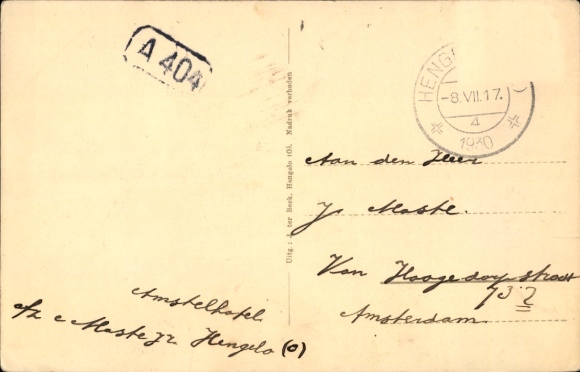 A 404
HENG
-8.VII.17.
4
1930
Uitg.: J. ter Beek, Hengelo (O). Nadruk verboden
Aan den Heer
Js Maste.
Van Hoogedorpstraat
73 2
Amsterdam.
Amstelhotel
Afz C Maste Jr. Hengelo (O)